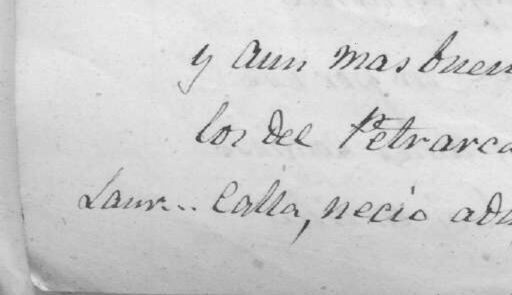 y aun mas buen
los del Petrarca
Laur.. Calla, necio adu